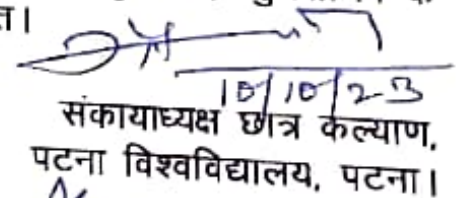 त।
10/10/23
संकायाध्यक्ष छात्र कल्याण,
पटना विश्वविद्यालय, पटना।